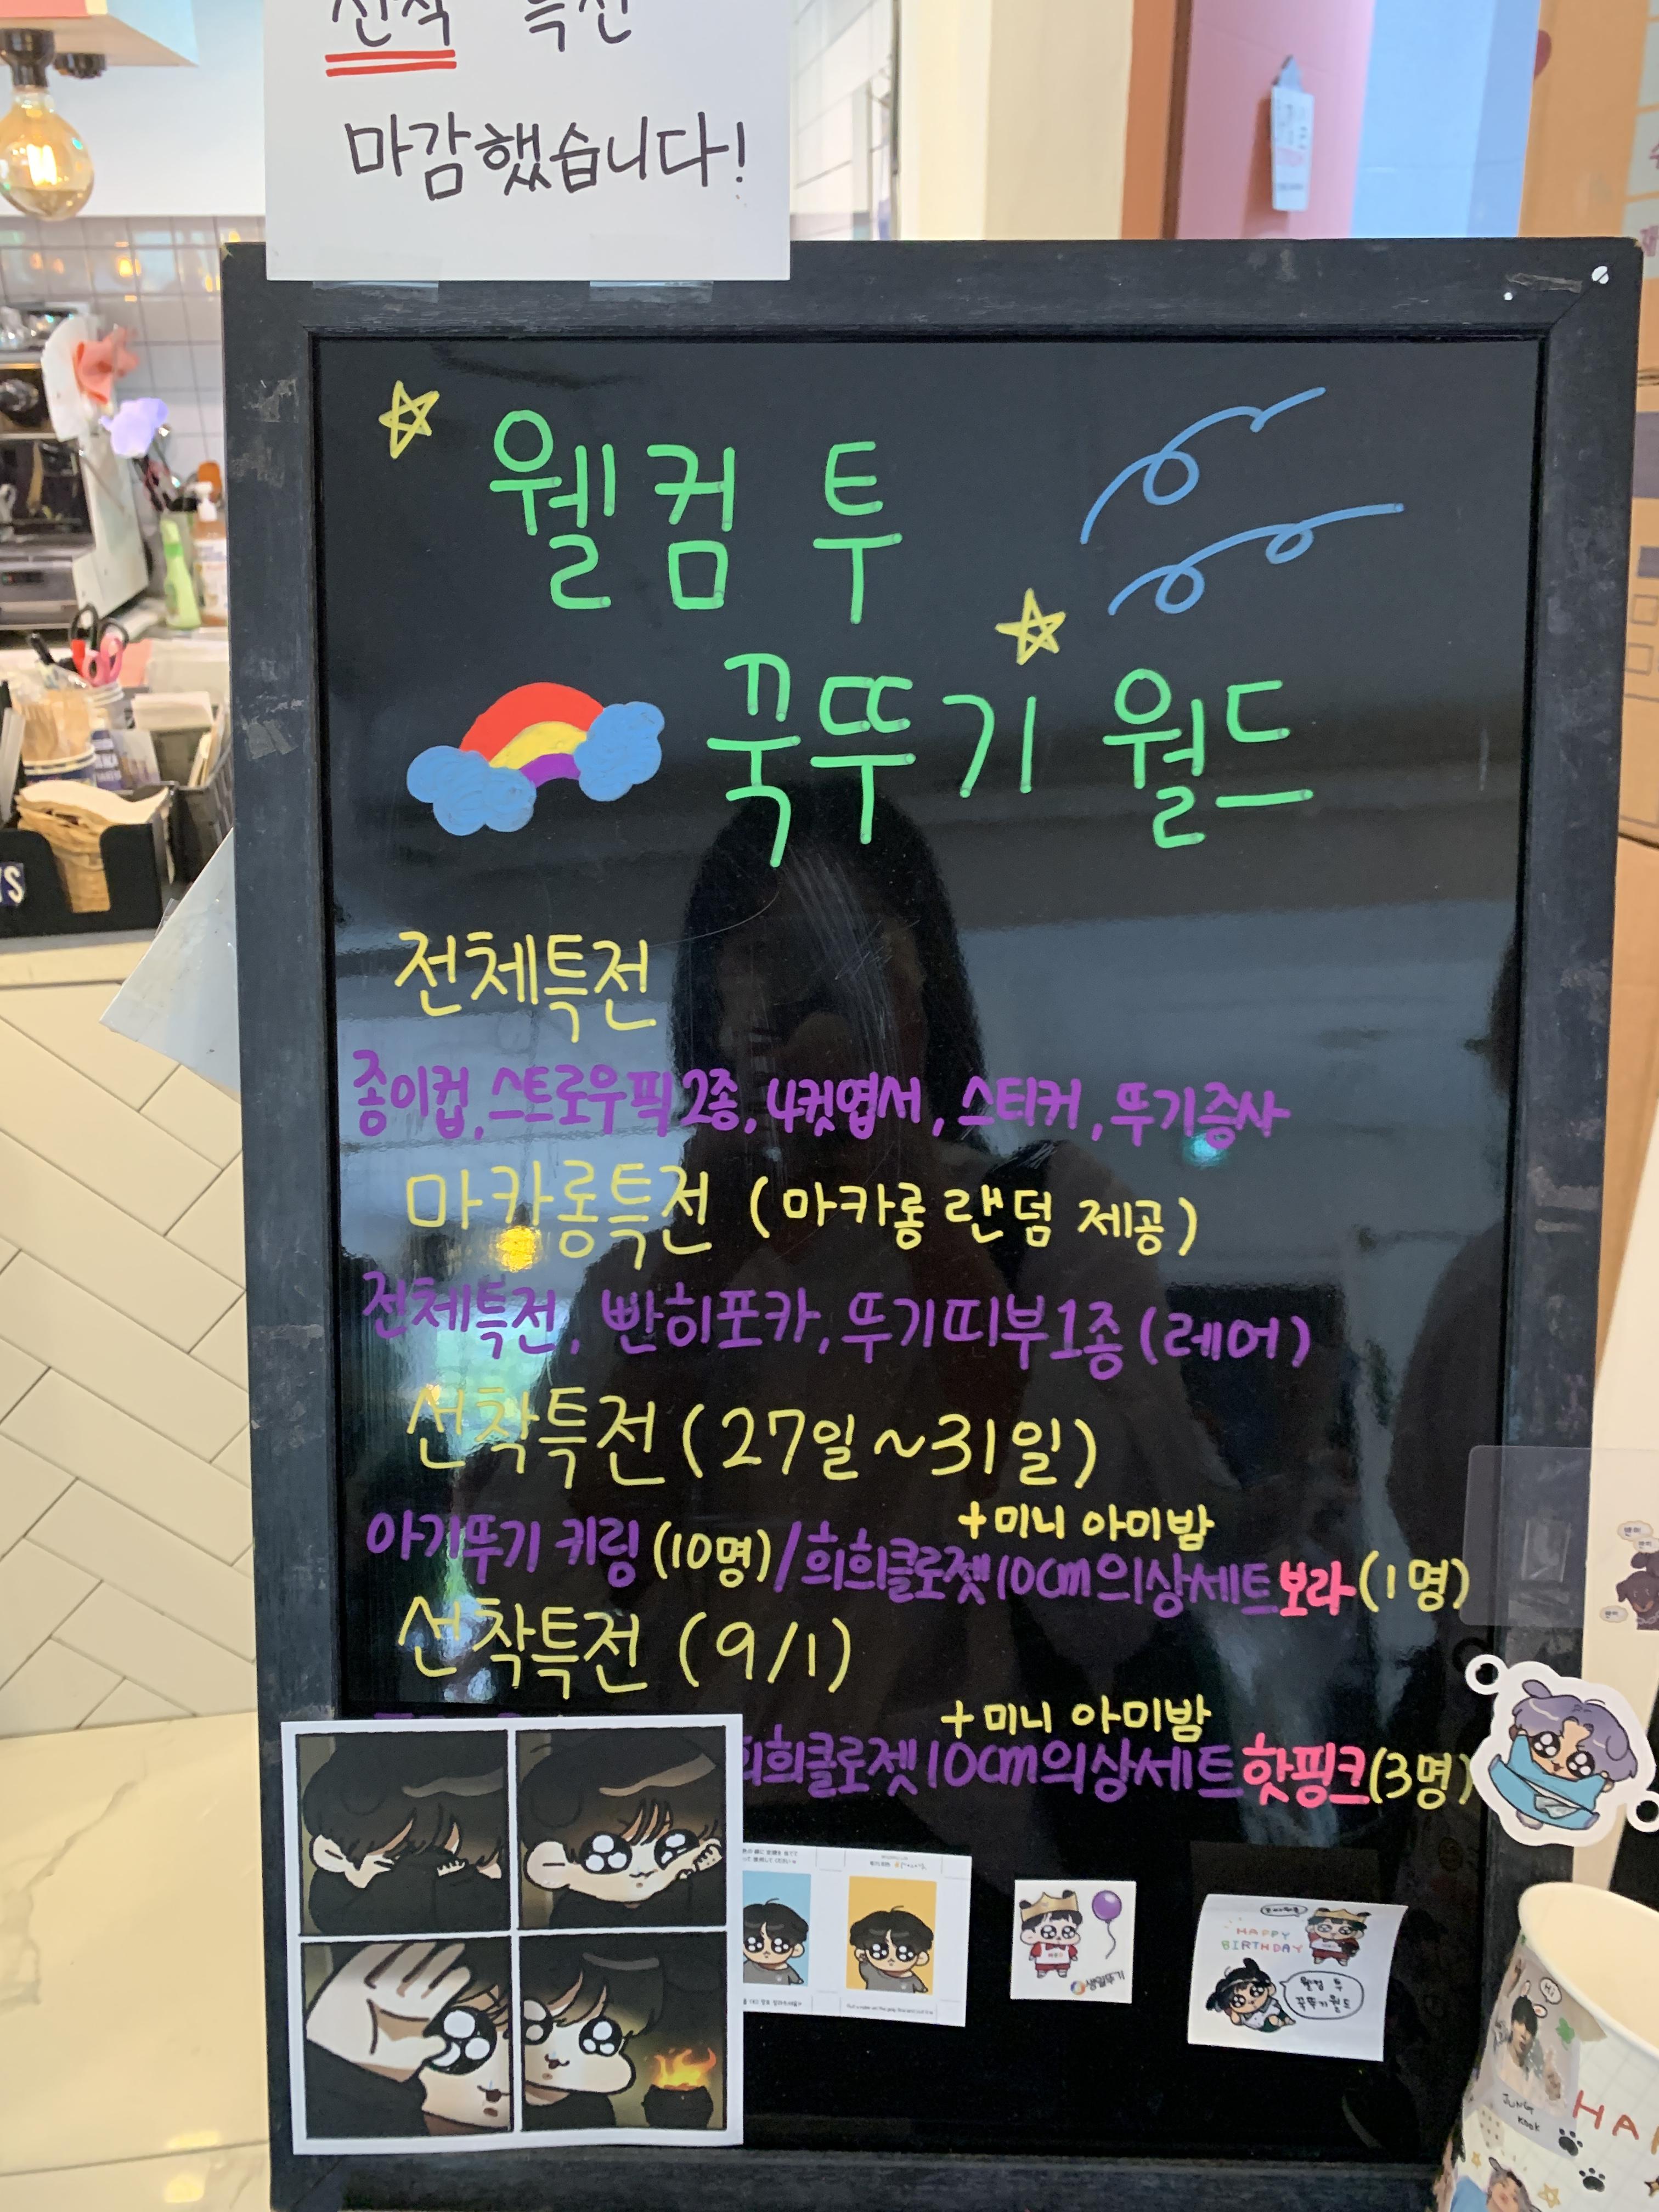 선착 특전
마감했습니다!
웰컴 투
꾹뚜기 월드
전체특전
종이컵, 스트로우픽 2종, 4컷엽서, 스티커, 뚜기증사
마카롱특전 (마카롱 랜덤 제공)
전체특전, 빤히포카, 뚜기띠부1종 (레어)
선착특전 (27일~31일)
+미니 아미밤
아기뚜기 키링 (10명) / 희희클로젯 10cm의상세트 보라 (1명)
선착특전 (9/1)
+미니 아미밤
희희클로젯 10cm의상세트 핫핑크 (3명)
생일뚜기
HAPPY
BIRTHDAY
웰컴 투
꾹뚜기월드
Hi
JUNG
KOOK
HA